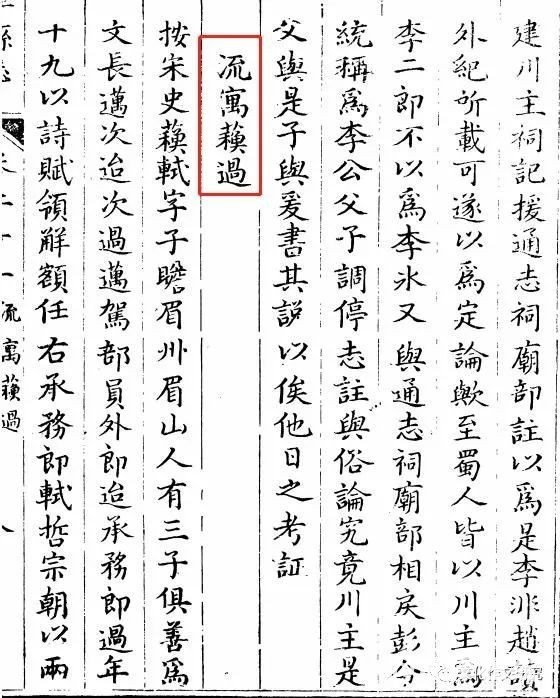 建川主祠記援通志祠廟部註以爲是李非趙
外紀所載可遂以爲定論歟至蜀人皆以川主爲
李二郎不以爲李冰又與通志祠廟部相戾彭令
統稱爲李公父子調停志註與俗論究竟川主是
父與是子與爰書其説以俟他日之考証
流寓蘓過
按宋史蘓軾字子瞻眉州眉山人有三子俱善爲
文長邁次迨次過邁駕部員外郎迨承務郎過年
十九以詩賦領解額任右承務郎軾哲宗朝以兩
卷二十一 流寓蘓過 八